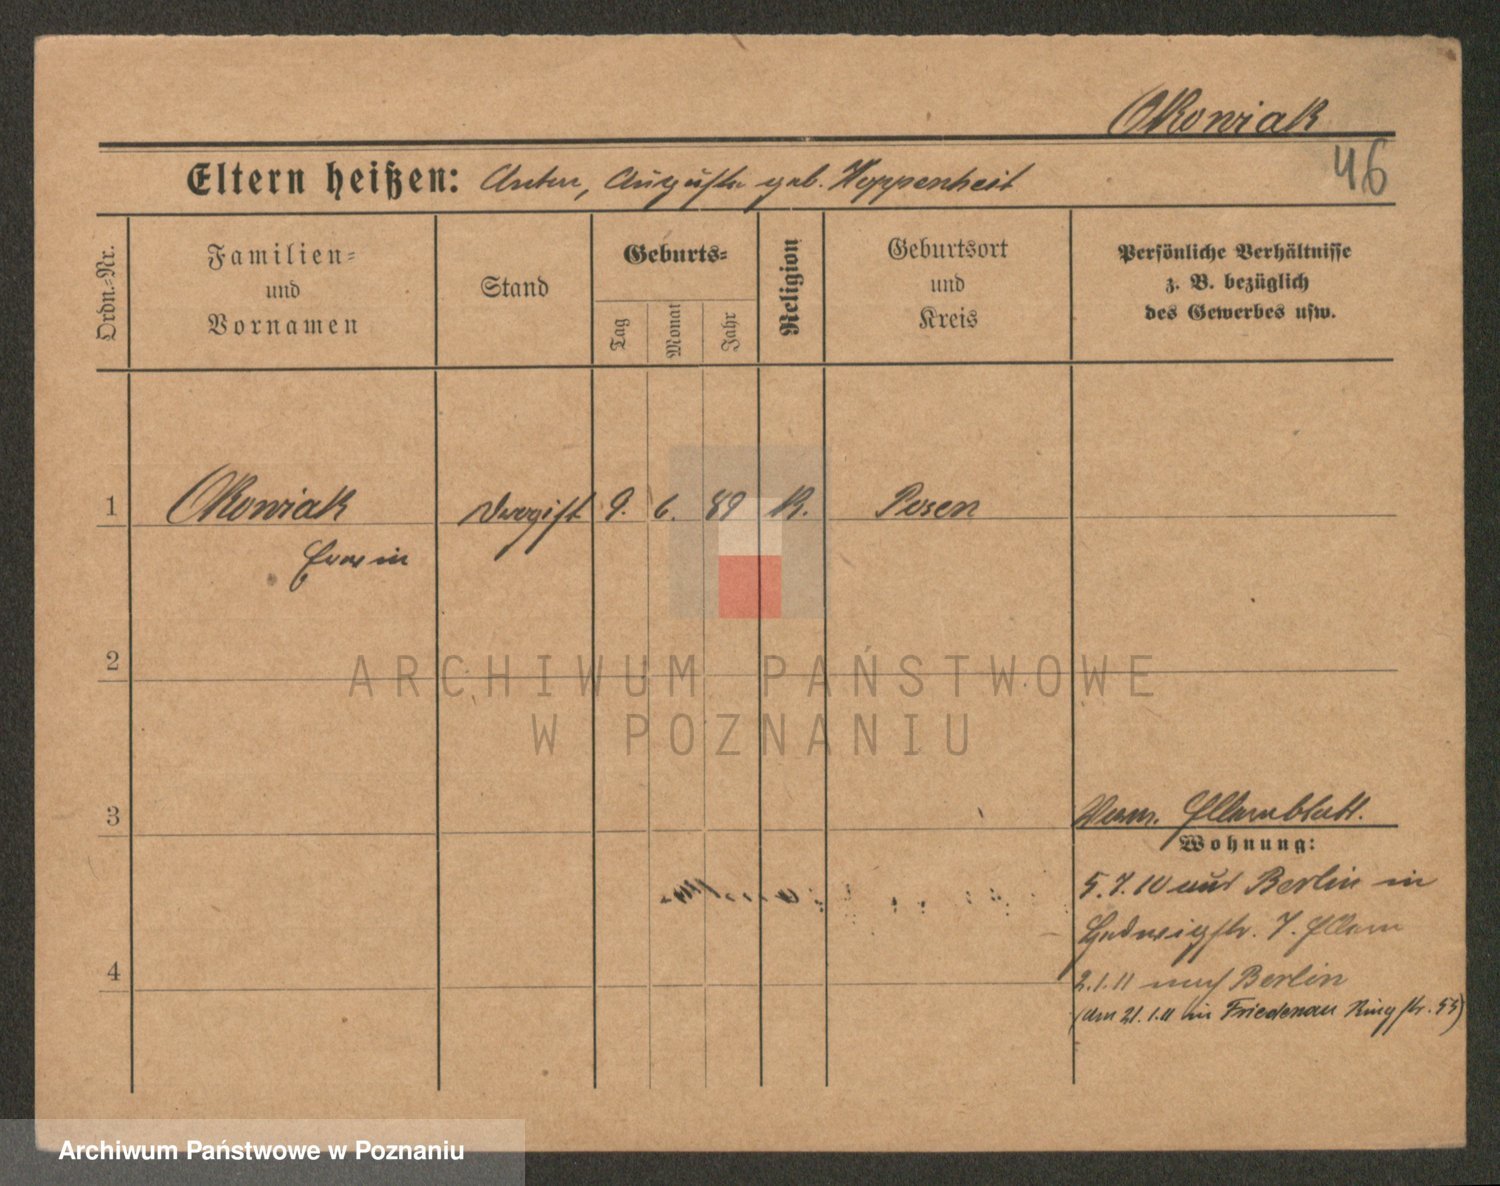 Okowiak
46
Eltern heißen: Anton, Auguste geb. Hoppenheit
Ordn.-Nr.
Familien-
und
Vornamen
Stand
Geburts-
Tag
Monat
Jahr
Religion
Geburtsort
und
Kreis
Persönliche Verhältnisse
z. B. bezüglich
des Gewerbes usw.
1 Okowiak Drogist 9. 6. 89 K. Posen
Erwin
2
ARCHIWUM PAŃSTWOWE
W POZNANIU
3
Elternblatt.
Wohnung:
5.7.10 aus Berlin in
Hedwigstr. 7. Eltern
4
2.1.11 nach Berlin
(am 21.1.11 in Friedenau Ringstr. 55)
Archiwum Państwowe w Poznaniu